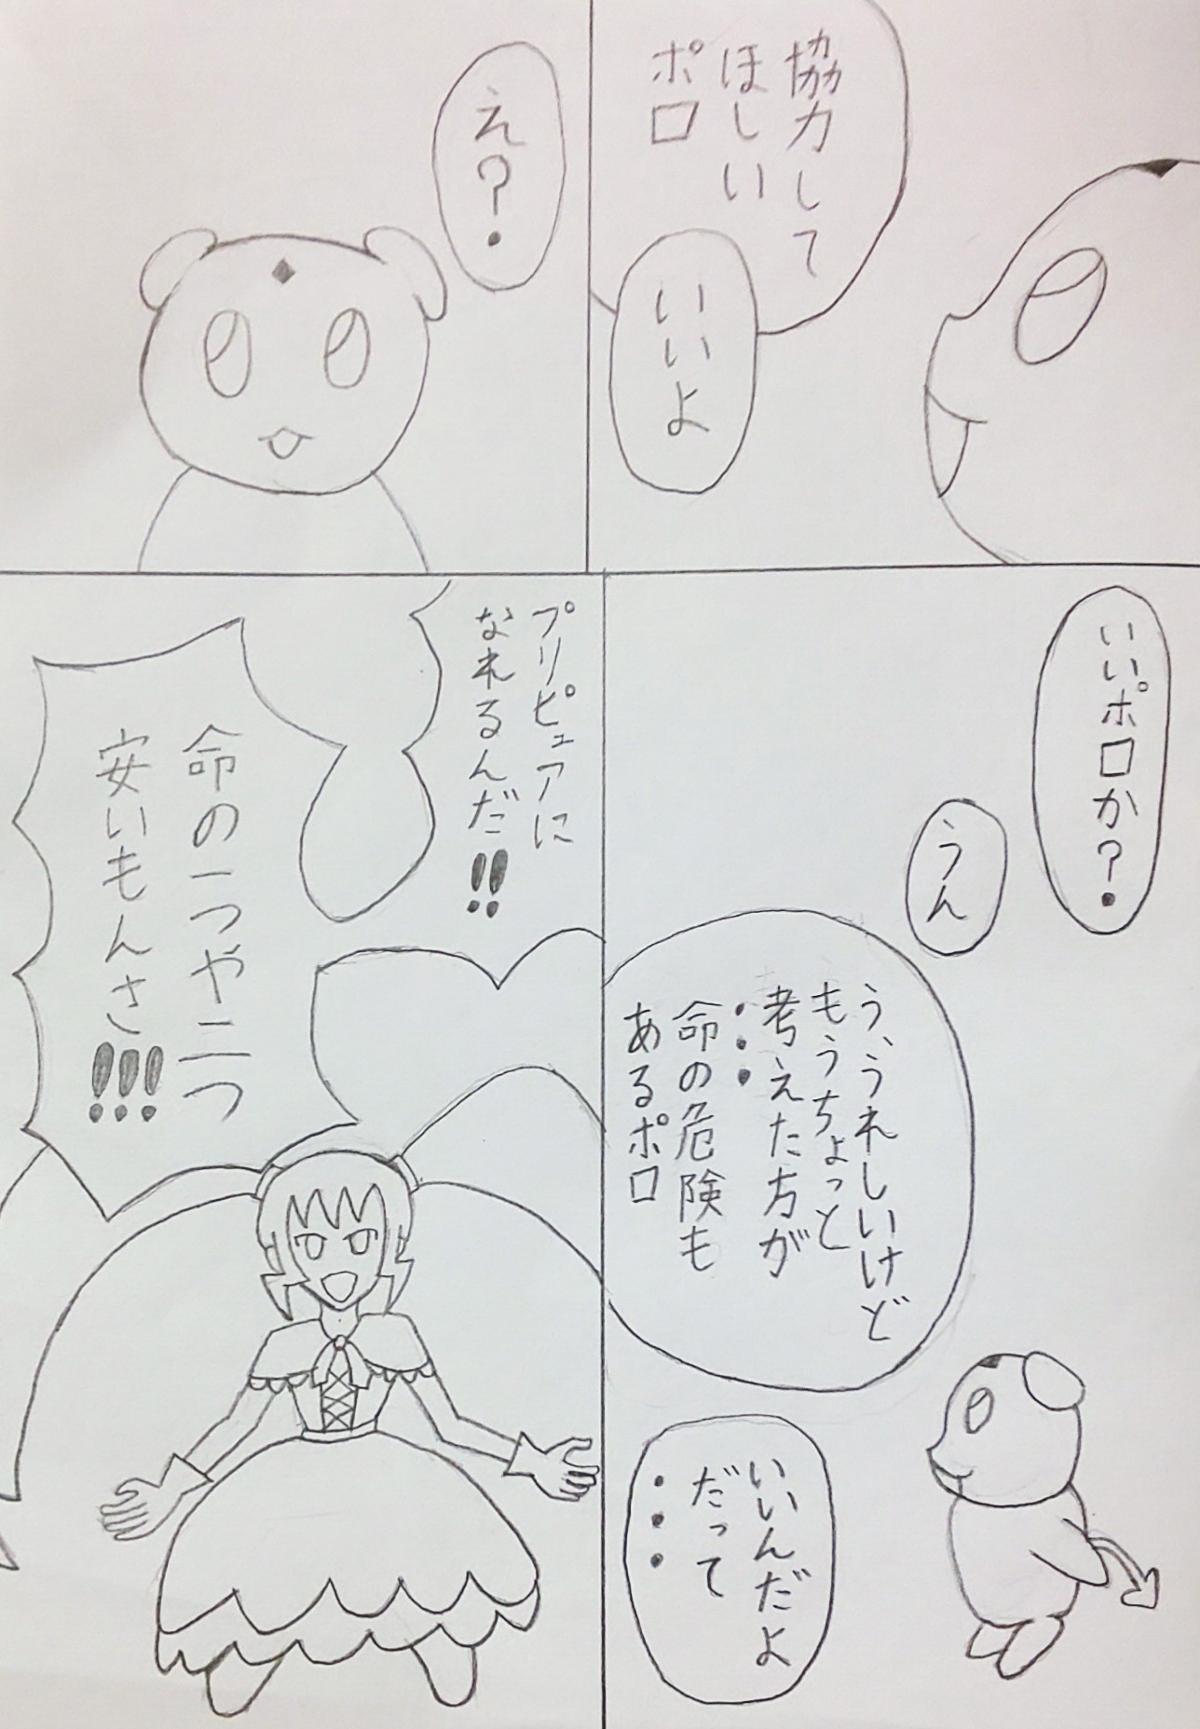 協力して
ほしい
ポロ
いいよ
え?
いいポロか?
うん
う、うれしいけど
もうちょっと
考えた方が
・・・
命の危険も
あるポロ
いいんだよ
だって
・・・
プリピュアに
なれるんだ!!
命の一つや二つ
安いもんさ!!!